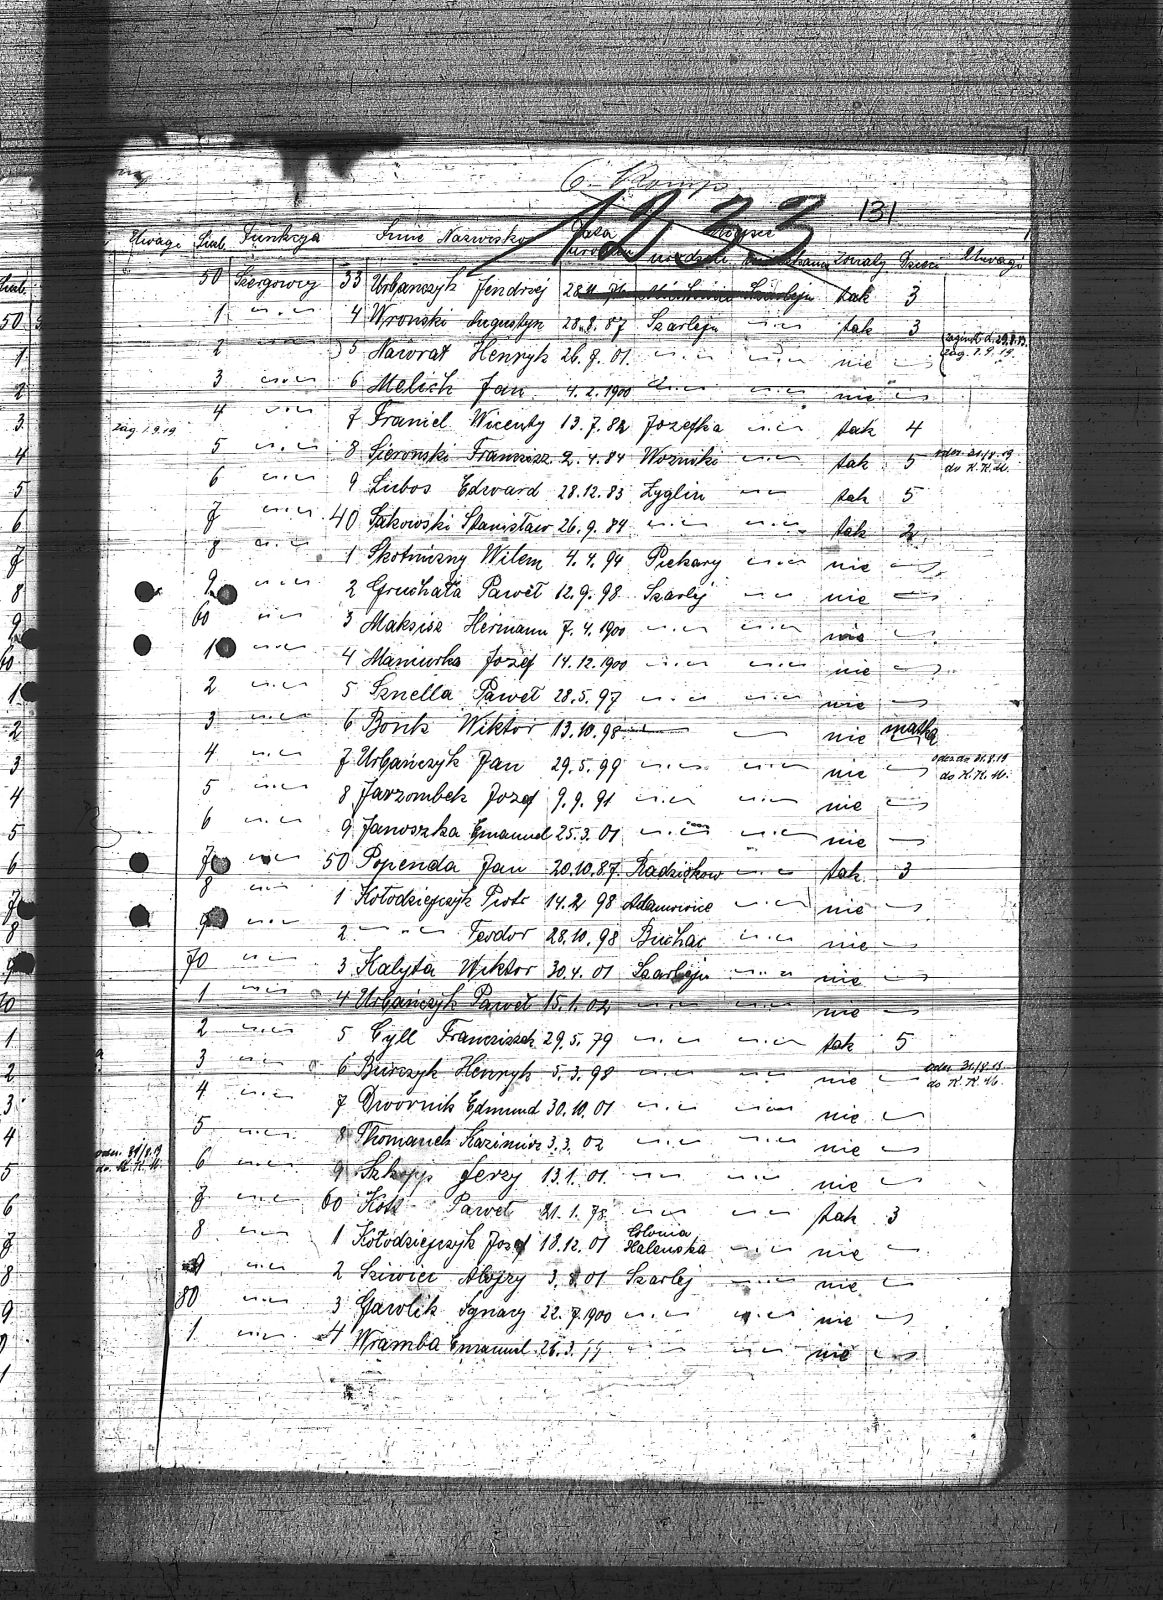 6. Komp
1233 131
Uwagi Liczb. Funkcja Imię Nazwisko Data urodzin Miejsce urodzenia zamieszkania żonaty Dzieci Uwagi
50 Szeregowy 33 Urbańczyk Jendrzej Szarleju tak 3
1 " 4 Wronski Augustyn 28.8.87 Szarleju " tak 3
2 " 5 Nawrat Henryk 26.7.01 " " nie — zag. 1.9.19.
3 " 6 Melich Jan 4.2.1900 " " nie —
zag. 1.9.19 4 " 7 Franiel Wicenty 13.7.82 Jozefka " tak 4
5 " 8 Sieronski Francisz. 2.4.84 Wozniki " tak 5 odesz. 31/8.19 do K.K.U.
6 " 9 Lubos Edward 28.12.83 Zyglin " tak 5
7 " 40 Sakowski Stanisław 26.9.84 " " tak 2
8 " 1 Skotniczny Wilem 4.4.94 Piekary " nie —
9 " 2 Gruchała Paweł 12.9.98 Szarlej " nie —
60 " 3 Maksisz Hermann 7.4.1900 " " nie —
1 " 4 Maniurka Jozef 14.12.1900 " " nie —
2 " 5 Sznella Paweł 28.5.97 " " nie —
3 " 6 Bonk Wiktor 13.10.98 — — nie matka
4 " 7 Urbańczyk Jan 29.5.99 " " nie — odesz. 31.8.19 do K.K.U.
5 " 8 Jarzombek Jozef 9.9.91 " " nie —
6 " 9 Janoszka Emanuel 25.3.01 " " nie —
7 " 50 Popenda Jan 20.10.87. Radziokow " tak 3
8 " 1 Kołodziejczyk Piotr 14.2 98 Adamowice " nie —
9 " 2 " Teodor 28.10.98 Buchac " nie —
70 " 3 Kalyta Wiktor 30.4.01 Szarleju " nie —
1 " 4 Urbańczyk Paweł 15.1.02 " " nie —
2 " 5 Cyll Franciszek 29.5.79 " " tak 5
3 " 6 Burczyk Henryk 5.3.98 " " nie — odesz. 31/8.19 do K.K.U.
4 " 7 Dwornik Edmund 30.10.01 " " nie —
5 " 8 Thomanek Kazimierz 3.3.02 " " nie —
odesz. 31/8.19 do K.K.U. 6 " 9 Jerzy 13.1.01 " " nie —
7 " 60 Kotz Paweł 21.1.78 " " tak 3
8 " 1 Kołodziejczyk Jozef 18.12.01 Colonia Halenska " nie —
9 " 2 Sziwiec Alojzy 3.8.01 Szarlej " nie —
80 " 3 Gawlik Ignacy 22.7.1900 " " nie —
1 " 4 Wramba Emanuel 26.3. " " nie —